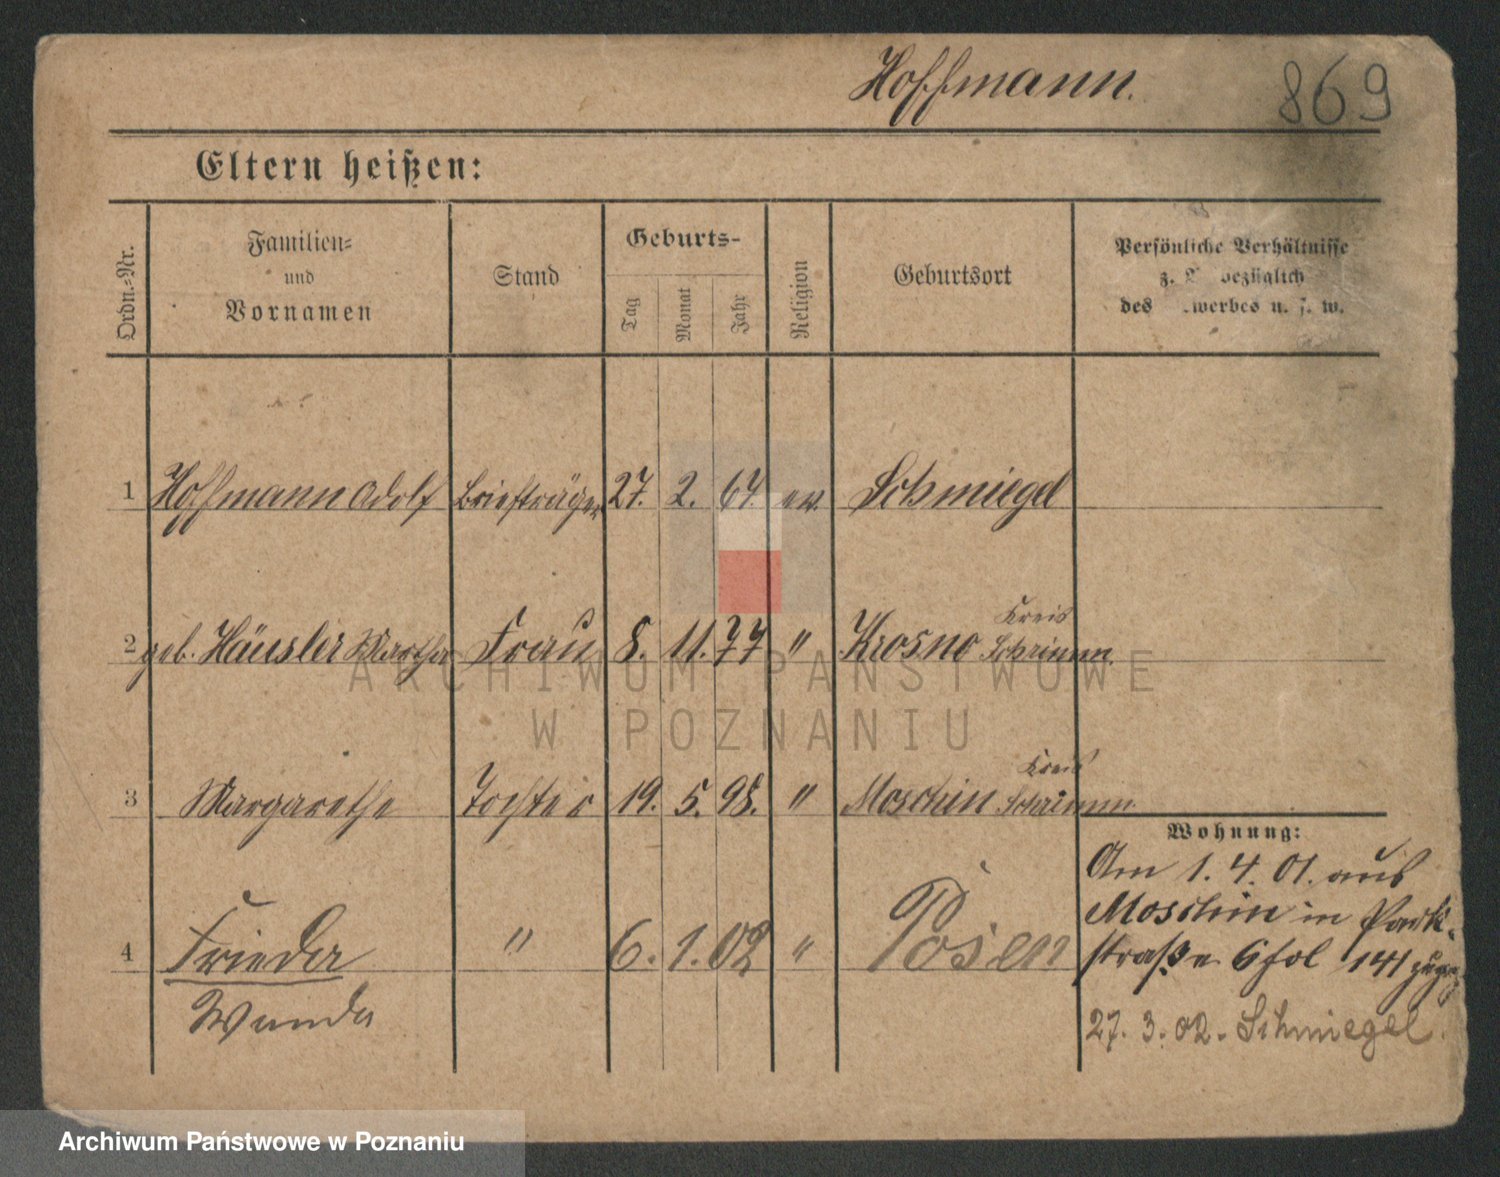 Hoffmann.
869
Eltern heißen:
Ordn.-Nr.
Familien-
und
Vornamen
Stand
Geburts-
Tag
Monat
Jahr
Religion
Geburtsort
Persönliche Verhältnisse
z. B. bezüglich
des werbes u. s. w.
1 Hoffmann Adolf Briefträger 27. 2. 67. ev. Schmiegel
Kreis
2 geb. Häusler Martha Frau 8. 11. 77 " Krosno Schrimm.
Kreis
3 Margarethe Tochter 19. 5. 98. " Moschin Schrimm
Wohnung:
Am 1. 4. 01. aus
Moschin in Park-
straße 6 fol 141 zugez
4 Frieda " 6. 1. 02 " Posen
Wanda
27. 3. 02. Schmiegel.
ARCHIWUM PAŃSTWOWE
W POZNANIU
Archiwum Państwowe w Poznaniu